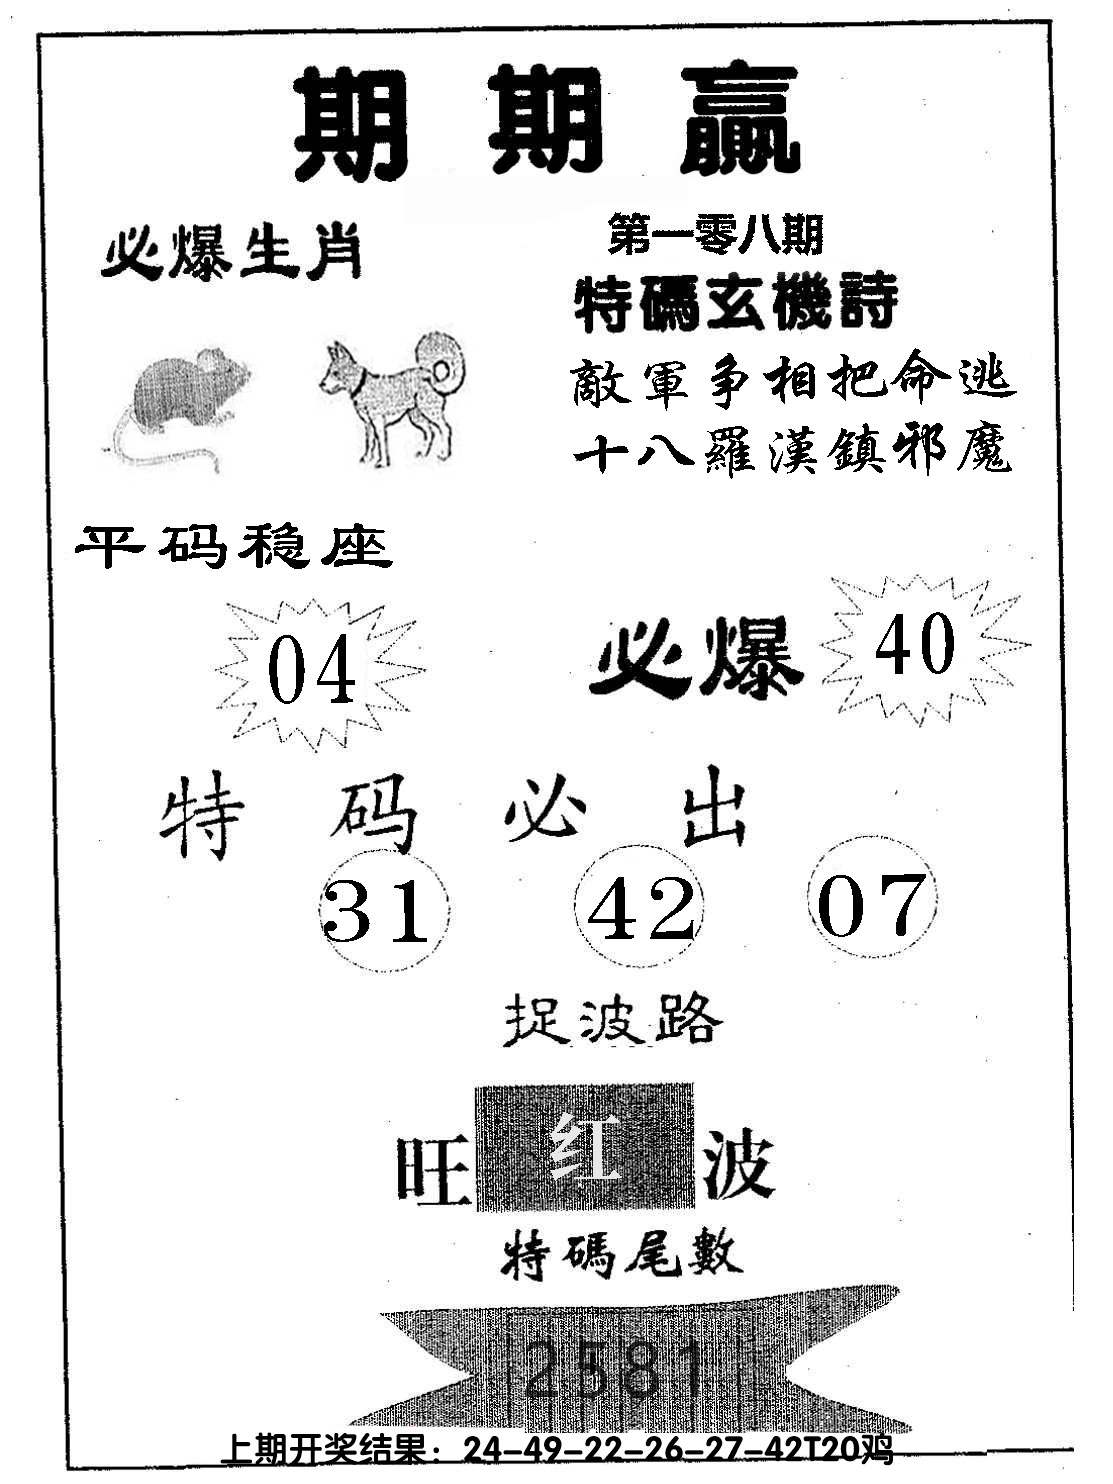 期期贏
必爆生肖
第一零八期
特碼玄機詩
敵軍争相把命逃
十八羅漢鎮邪魔
平码稳座
04
必爆
40
特码必出
31 42 07
捉波路
旺红波
特碼尾數
2581
上期开奖结果：24-49-22-26-27-42T20鸡